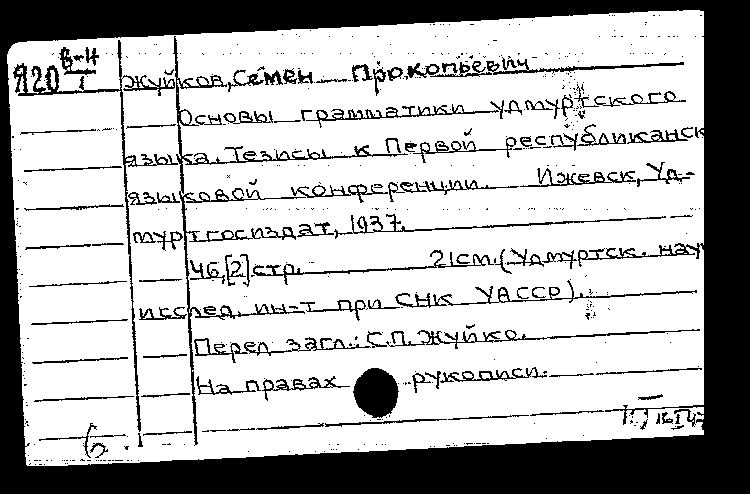 Я20 В-Н
1
Жуйков, Семен Прокопьевич
Основы грамматики удмуртского
языка. Тезисы к Первой республиканск
языковой конференции. Ижевск, Уд-
муртгосиздат, 1937.
46,[2] стр. 21 см. (Удмуртск. науч
исслед. ин-т при СНК УАССР).
Перед загл.: С.П. Жуйко.
На правах рукописи.
6.